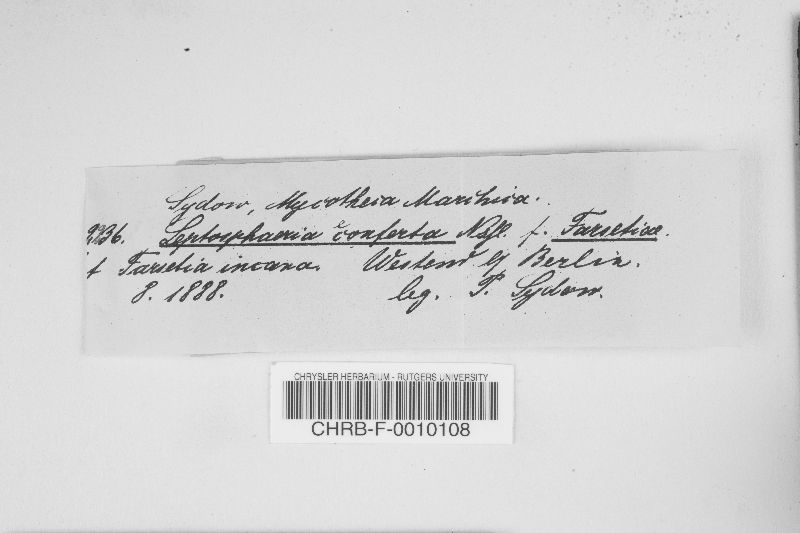 Sydow, Mycotheca Marchica.
2236. Leptosphaeria conferta Nssl. f. Farsetiae.
f Farsetia incana. Westend b/ Berlin.
8. 1888. leg. P. Sydow.
CHRYSLER HERBARIUM - RUTGERS UNIVERSITY
CHRB-F-0010108